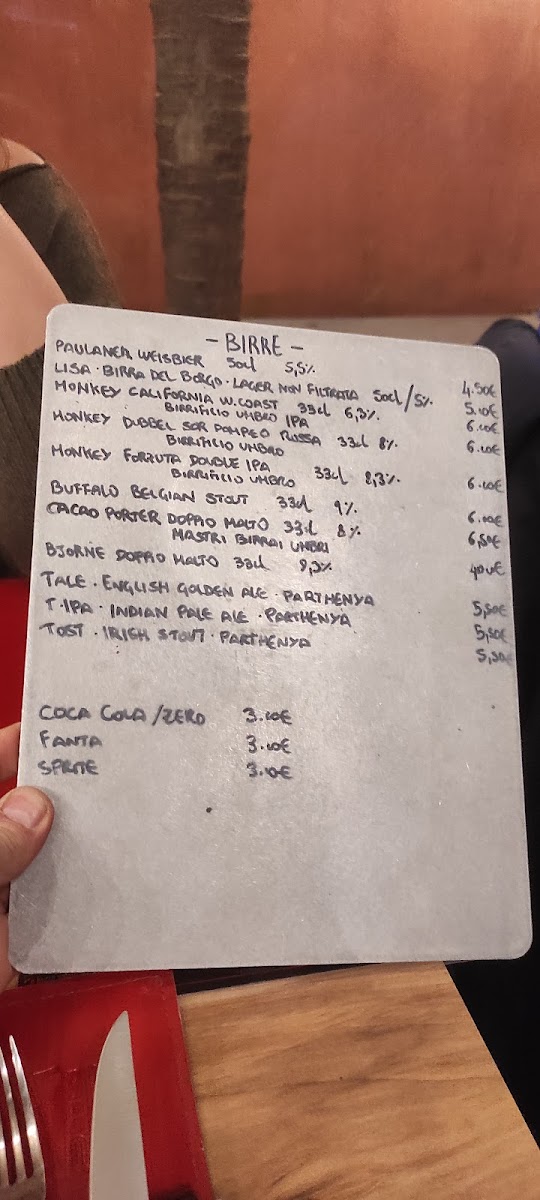 - BIRRE -
PAULANER WEISBIER 50cl 5,5% 4.50€
LISA · BIRRA DEL BORGO · LAGER NON FILTRATA 50cl/5% 5.10€
MONKEY CALIFORNIA W. COAST 33cl 6,3% 6.00€
BIRRIFICIO UMBRO IPA
MONKEY DUBBEL SOR POMPEO RUSSA 33cl 8% 6.00€
BIRRIFICIO UMBRO
MONKEY FORZUTA DOUBLE IPA 33cl 8,3% 6.00€
BIRRIFICIO UMBRO
BUFFALO BELGIAN STOUT 33cl 9% 6.00€
CACAO PORTER DOPPIO MALTO 33cl 8% 6,50€
MASTRI BIRRAI UMBRI
BJORNE DOPPIO MALTO 33cl
TALE · ENGLISH GOLDEN ALE · PARTHENYA 5,50€
T·IPA · INDIAN PALE ALE · PARTHENYA 5,50€
TOST · IRISH STOUT · PARTHENYA 5,50€
COCA COLA/ZERO 3.00€
FANTA 3.00€
SPRITE 3.00€